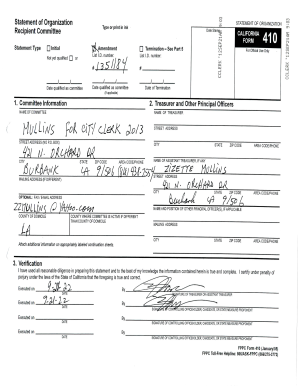 Statement of Organization
Recipient Committee
Type or print in ink
Date Stamp
STATEMENT OF ORGANIZATION
CALIFORNIA FORM 410
For Official Use Only
Statement Type
Initial
Amendment
Termination – See Part 5
Not yet qualified or
List I.D. number:
List I.D. number:
# 1351184
#
Date qualified as committee
Date qualified as committee
(If applicable)
Date of Termination
1. Committee Information
2. Treasurer and Other Principal Officers
NAME OF COMMITTEE
MULLINS FOR CITY CLERK 2013
STREET ADDRESS (NO P.O. BOX)
421 N. ORCHARD DR
CITY STATE ZIP CODE AREA CODE/PHONE
BURBANK CA 91506
MAILING ADDRESS (IF DIFFERENT)
OPTIONAL: FAX / E-MAIL ADDRESS
ZZMULLINS@YAHOO.COM
COUNTY OF DOMICILE
COUNTY WHERE COMMITTEE IS ACTIVE IF DIFFERENT THAN COUNTY OF DOMICILE
LA
Attach additional information on appropriately labeled continuation sheets.
NAME OF TREASURER
STREET ADDRESS
CITY STATE ZIP CODE AREA CODE/PHONE
NAME OF ASSISTANT TREASURER, IF ANY
ZIZETTE MULLINS
STREET ADDRESS
421 N. ORCHARD DR
CITY STATE ZIP CODE AREA CODE/PHONE
Burbank CA 91506
NAME AND POSITION OF OTHER PRINCIPAL OFFICER(S), IF APPLICABLE
MAILING ADDRESS
CITY STATE ZIP CODE AREA CODE/PHONE
3. Verification
I have used all reasonable diligence in preparing this statement and to the best of my knowledge the information contained herein is true and complete. I certify under penalty of
perjury under the laws of the State of California that the foregoing is true and correct.
Executed on 9-21-22 By
DATE
SIGNATURE OF TREASURER OR ASSISTANT TREASURER
Executed on 9-21-22 By
DATE
SIGNATURE OF CONTROLLING OFFICEHOLDER, CANDIDATE, OR STATE MEASURE PROPONENT
Executed on By
DATE
SIGNATURE OF CONTROLLING OFFICEHOLDER, CANDIDATE, OR STATE MEASURE PROPONENT
Executed on By
DATE
SIGNATURE OF CONTROLLING OFFICEHOLDER, CANDIDATE, OR STATE MEASURE PROPONENT
FPPC Form 410 (January/05)
FPPC Toll-Free Helpline: 866/ASK-FPPC (866/275-3772)